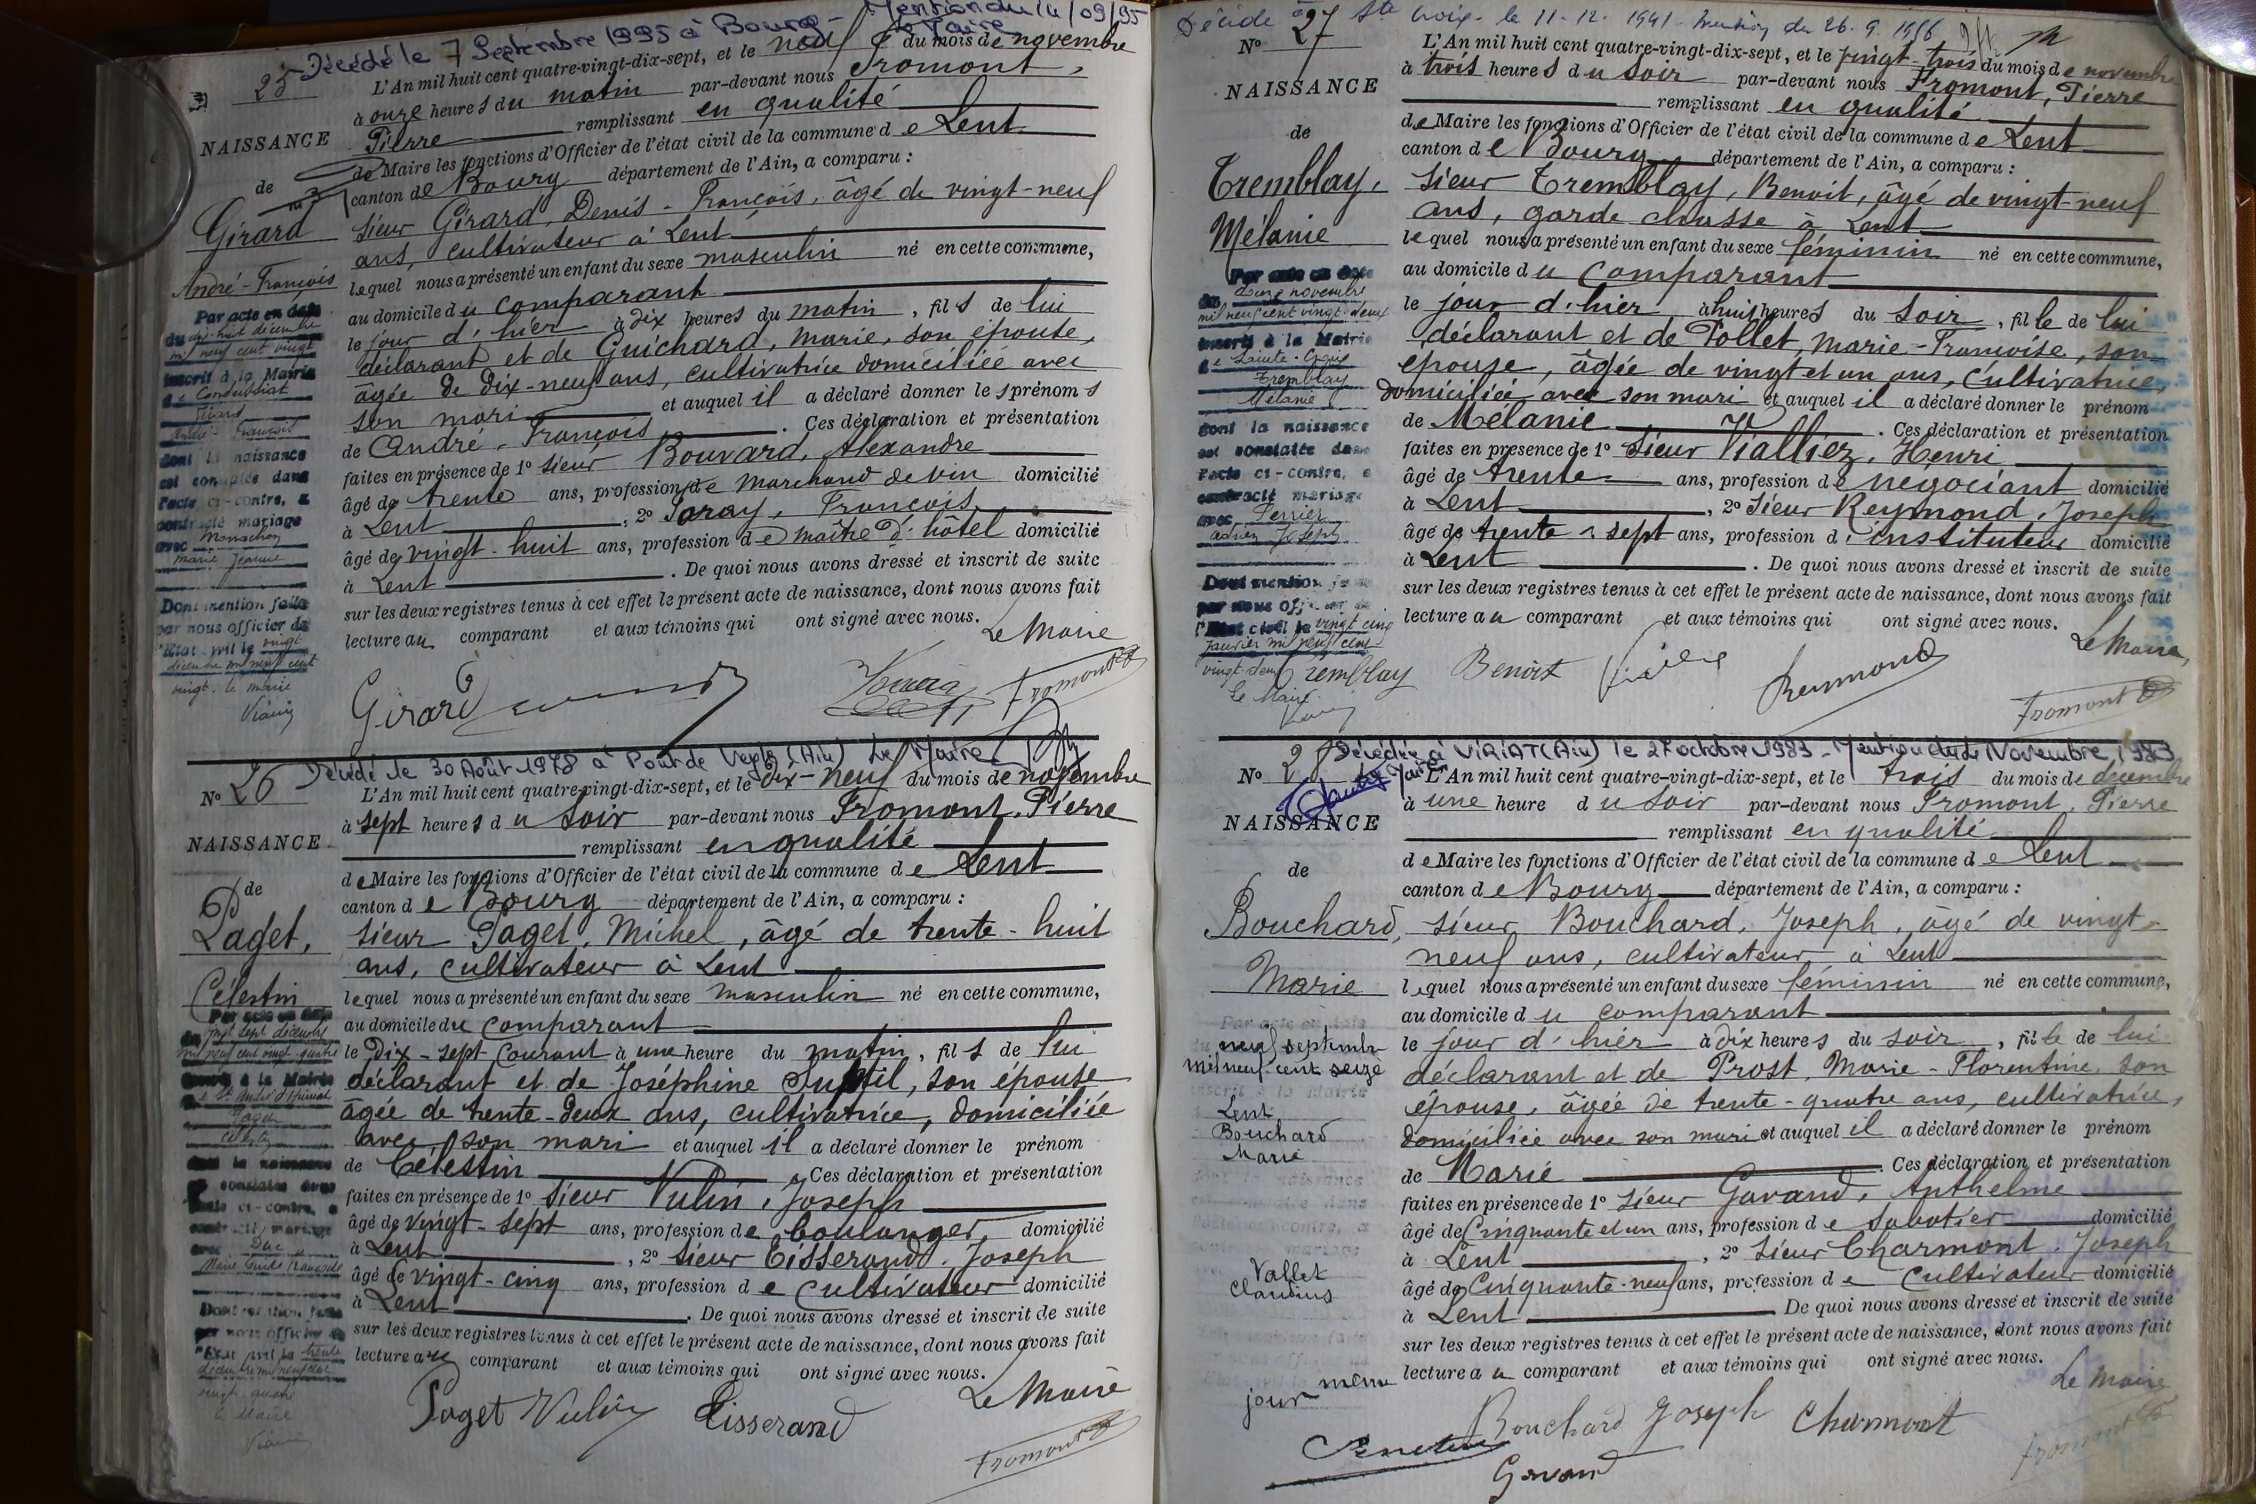 Décédé le 7 Septembre 1995 à Bourg - Mention du 14/09/95
Le Maire
N° 25
L'An mil huit cent quatre-vingt-dix-sept, et le neuf du mois de novembre
à onze heures du matin par-devant nous Fromont,
Pierre remplissant en qualité
NAISSANCE
de Maire les fonctions d'Officier de l'état civil de la commune de Lent
de
canton de Bourg département de l'Ain, a comparu :
Girard
André-François
sieur Girard, Denis-François, âgé de vingt-neuf
ans, cultivateur à Lent
lequel nous a présenté un enfant du sexe masculin né en cette commune,
au domicile du comparant
le jour d'hier à dix heures du matin, fils de lui
déclarant et de Guichard, Marie, son épouse,
âgée de dix-neuf ans, cultivatrice domiciliée avec
son mari et auquel il a déclaré donner les prénoms
de André-François. Ces déclaration et présentation
faites en présence de 1° sieur Bouvard, Alexandre
âgé de trente ans, profession de marchand de vin domicilié
à Lent, 2° Paray, François,
âgé de vingt-huit ans, profession de maître d'hôtel domicilié
à Lent. De quoi nous avons dressé et inscrit de suite
sur les deux registres tenus à cet effet le présent acte de naissance, dont nous avons fait
lecture au comparant et aux témoins qui ont signé avec nous.
Le Maire
Girard
Fromont
Par acte en date
du dix-huit décembre
mil neuf cent vingt
inscrit à la Mairie
de Condeissiat
Girard
André-François
dont la naissance
est constatée dans
l'acte ci-contre, a
contracté mariage
avec
Marie Jeanne
Dont mention faite
par nous officier de
l'Etat civil le vingt
décembre mil neuf cent
vingt. le maire
Décédé le 30 Août 1978 à Pont de Veyle (Ain) Le Maire
N° 26
L'An mil huit cent quatre-vingt-dix-sept, et le dix-neuf du mois de novembre
à sept heures du soir par-devant nous Fromont, Pierre
NAISSANCE
remplissant en qualité
de Maire les fonctions d'Officier de l'état civil de la commune de Lent
de
canton de Bourg département de l'Ain, a comparu :
Paget,
Célestin
sieur Paget, Michel, âgé de trente-huit
ans, cultivateur à Lent
lequel nous a présenté un enfant du sexe masculin né en cette commune,
au domicile du comparant
le dix-sept courant à une heure du matin, fils de lui
déclarant et de Joséphine, son épouse
âgée de trente-deux ans, cultivatrice, domiciliée
avec son mari et auquel il a déclaré donner le prénom
de Célestin. Ces déclaration et présentation
faites en présence de 1° sieur Vulin, Joseph
âgé de vingt-sept ans, profession de boulanger, domicilié
à Lent, 2° sieur Tisserand, Joseph
âgé de vingt-cinq ans, profession de cultivateur domicilié
à Lent. De quoi nous avons dressé et inscrit de suite
sur les deux registres tenus à cet effet le présent acte de naissance, dont nous avons fait
lecture au comparant et aux témoins qui ont signé avec nous.
Le Maire
Paget Vulin Tisserand
Fromont
Par acte en date
du vingt sept décembre
mil neuf cent vingt-quatre
Paget
Célestin
dont la naissance
est constatée dans
l'acte ci-contre, a
contracté mariage
avec
Dont mention faite
par nous officier de
l'Etat civil le trente
décembre mil neuf cent
vingt quatre
le Maire
Décédé à Ste Croix le 11-12-1941 - Mention du 26.9.1956
N° 27
L'An mil huit cent quatre-vingt-dix-sept, et le vingt-trois du mois de novembre
à trois heures du soir par-devant nous Fromont, Pierre
NAISSANCE
remplissant en qualité
de Maire les fonctions d'Officier de l'état civil de la commune de Lent
de
canton de Bourg département de l'Ain, a comparu :
Tremblay,
Mélanie
sieur Tremblay, Benoit, âgé de vingt-neuf
ans, garde chasse à Lent
lequel nous a présenté un enfant du sexe féminin né en cette commune,
au domicile du comparant
le jour d'hier à huit heures du soir, fille de lui
déclarant et de Pollet, Marie-Françoise, son
épouse, âgée de vingt et un ans, cultivatrice,
domiciliée avec son mari et auquel il a déclaré donner le prénom
de Mélanie. Ces déclaration et présentation
faites en présence de 1° sieur Vialliez, Henri
âgé de trente ans, profession de négociant domicilié
à Lent, 2° sieur Reymond, Joseph
âgé de trente-sept ans, profession d'instituteur domicilié
à Lent. De quoi nous avons dressé et inscrit de suite
sur les deux registres tenus à cet effet le présent acte de naissance, dont nous avons fait
lecture au comparant et aux témoins qui ont signé avec nous.
Le Maire,
Tremblay Benoit
Reymond
Fromont
Par acte en date
du novembre
mil neuf cent vingt-deux
inscrit à la Mairie
de Sainte-Croix
Tremblay
Mélanie
dont la naissance
est constatée dans
l'acte ci-contre, a
contracté mariage
avec Perrier
Joseph
Dont mention faite
par nous officier de
l'Etat civil le vingt cinq
janvier mil neuf cent
vingt-deux
Le Maire
Décédée à VIRIAT (Ain) le 27 octobre 1983 - Mention du Novembre 1983
Le Maire
N° 28
L'An mil huit cent quatre-vingt-dix-sept, et le trois du mois de décembre
à une heure du soir par-devant nous Fromont, Pierre
NAISSANCE
remplissant en qualité
de Maire les fonctions d'Officier de l'état civil de la commune de Lent
de
canton de Bourg département de l'Ain, a comparu :
Bouchard,
Marie
sieur Bouchard, Joseph, âgé de vingt-
neuf ans, cultivateur à Lent
lequel nous a présenté un enfant du sexe féminin né en cette commune,
au domicile du comparant
le jour d'hier à dix heures du soir, fille de lui
déclarant et de Prost, Marie-Florentine, son
épouse, âgée de trente-quatre ans, cultivatrice,
domiciliée avec son mari et auquel il a déclaré donner le prénom
de Marie. Ces déclaration et présentation
faites en présence de 1° sieur Gavand, Anthelme
âgé de cinquante et un ans, profession de sabotier domicilié
à Lent, 2° sieur Charmont, Joseph
âgé de cinquante-neuf ans, profession de cultivateur domicilié
à Lent. De quoi nous avons dressé et inscrit de suite
sur les deux registres tenus à cet effet le présent acte de naissance, dont nous avons fait
lecture au comparant et aux témoins qui ont signé avec nous.
Le Maire
Bouchard Joseph Charmont
Gavand
Fromont
Par acte en date
du neuf septembre
mil neuf cent seize
inscrit à la Mairie
Lent
Bouchard
Marie
dont la naissance
Vallet
Claudius
même
jour